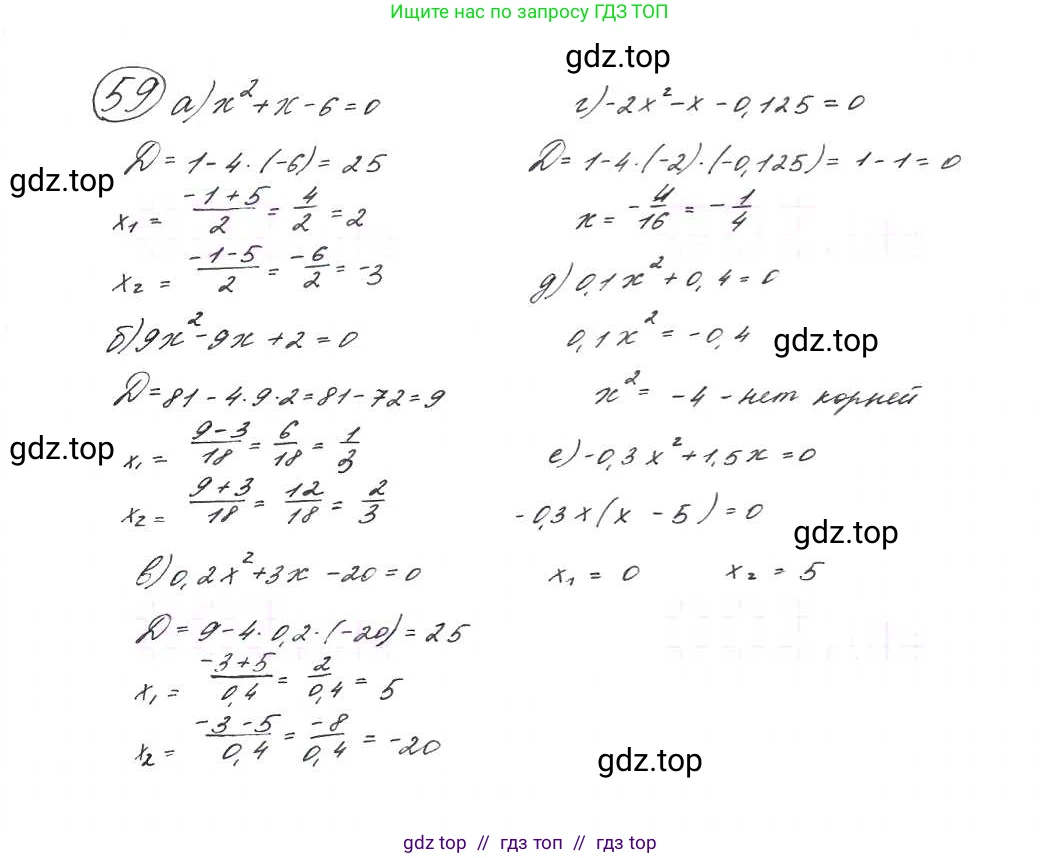 Ищите нас по запросу ГДЗ ТОП
gdz.top
59 а) x² + x - 6 = 0
D = 1 - 4 · (-6) = 25
gdz.top
x₁ = (-1+5)/2 = 4/2 = 2
x₂ = (-1-5)/2 = -6/2 = -3
б) 9x² - 9x + 2 = 0
D = 81 - 4 · 9 · 2 = 81 - 72 = 9
gdz.top
x₁ = (9-3)/18 = 6/18 = 1/3
x₂ = (9+3)/18 = 12/18 = 2/3
в) 0,2x² + 3x - 20 = 0
D = 9 - 4 · 0,2 · (-20) = 25
x₁ = (-3+5)/0,4 = 2/0,4 = 5
x₂ = (-3-5)/0,4 = -8/0,4 = -20
г) -2x² - x - 0,125 = 0
D = 1 - 4 · (-2) · (-0,125) = 1 - 1 = 0
x = -4/16 = -1/4
д) 0,1x² + 0,4 = 0
0,1x² = -0,4
gdz.top
x² = -4 - нет корней
е) -0,3x² + 1,5x = 0
-0,3x(x - 5) = 0
gdz.top
x₁ = 0 x₂ = 5
gdz.top
gdz top // гдз топ // gdz top